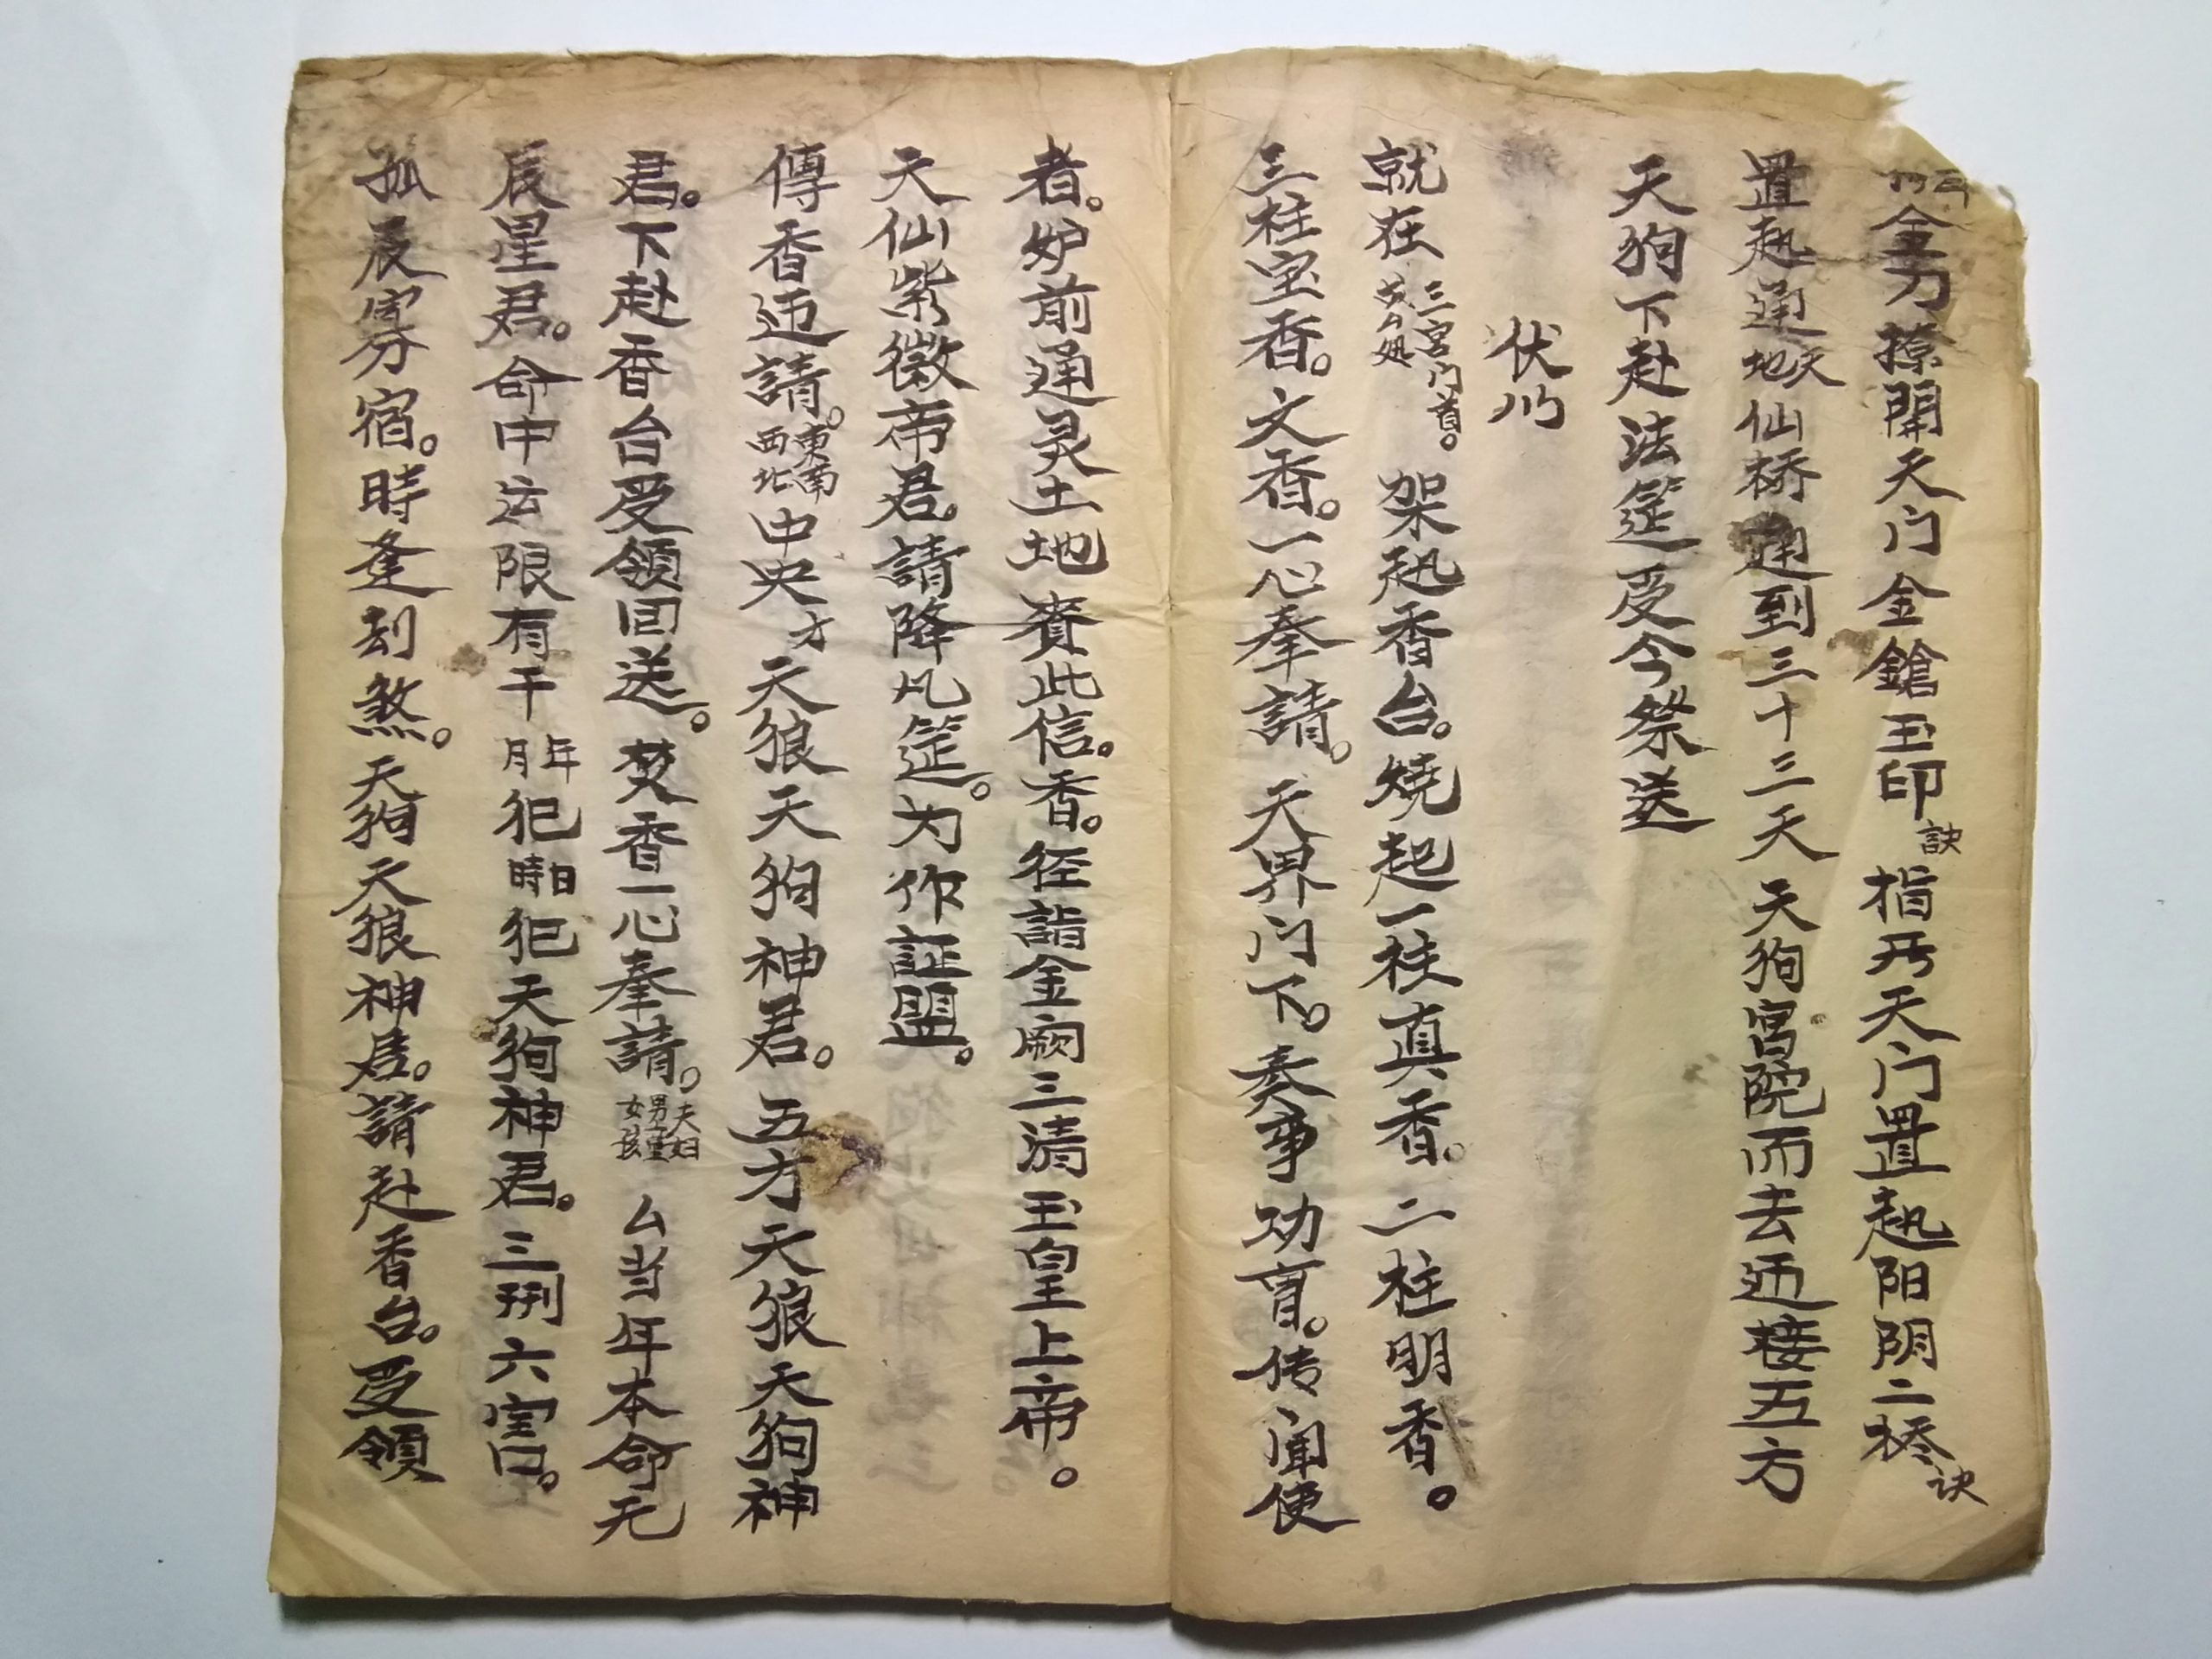 金刀撩開天门金鎗玉印訣指開天门置起阳阴二桥诀
置起通天地仙桥通到三十三天天狗宮院而去迎接五方
天狗下赴法筵受今祭送
伏以
就在三宮门首。架起香台。燒起一柱真香。二柱明香。
三柱宝香。文香。一心奉請。天界门下。奏事功曹。传闻使
者。炉前通灵土地賫此信。香。径詣金阙三清玉皇上帝。
天仙紫微帝君。請降凡筵。为作証盟。
傳香迎請。東南西北中央方天狼天狗神君。五方天狼天狗神
君。下赴香台受領回送。焚香一心奉請。夫妇男童女孩厶当年本命元
辰星君。命中运限有干年月犯日時犯天狗神君。三刑六害。
孤辰寡宿。時逢刦煞。天狗天狼神君。請赴香台。受領